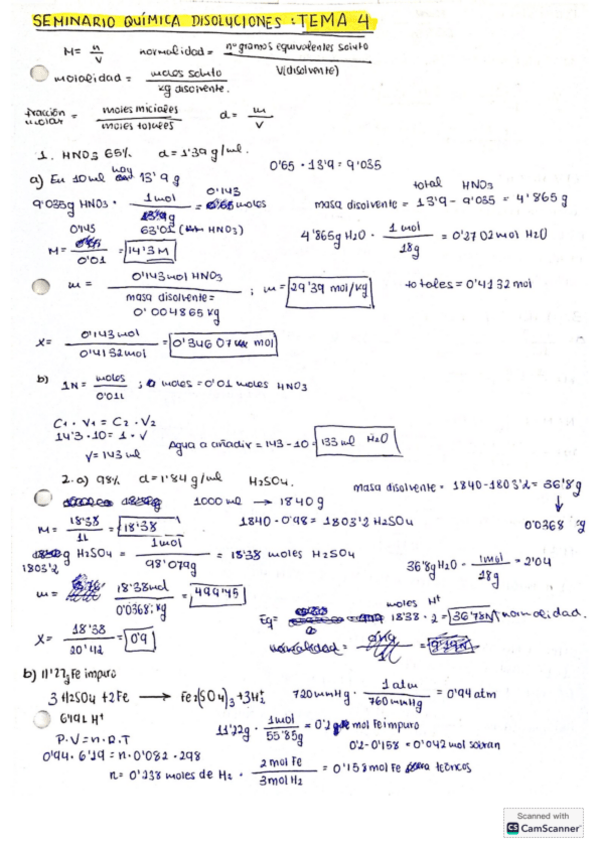 SEMINARIO QUÍMICA DISOLUCIONES: TEMA 4
M= n/V normalidad = nº gramos equivalentes soluto / V(disolvente)
molalidad = moles soluto / kg disolvente.
fracción molar = moles iniciales / moles totales d = m/V
1. HNO3 65% d=1'39 g/ml.
0'65 · 13'9 = 9'035
a) En 10ml hay 13'9 g
9'035g HNO3 · 1mol / 63'01 (HNO3) = 0'143 moles
masa disolvente = 13'9 - 9'035 = 4'865 g
total HNO3
M= 0'143 / 0'01 = 14'3M
4'865g H2O · 1 mol / 18g = 0'2702 mol H2O
m = 0'143mol HNO3 / masa disolvente = 0'004865 kg ; m = 29'39 mol/kg
totales = 0'4132 mol
X= 0'143mol / 0'4132mol = 0'34607 mol
b) 1N = moles / 0'01L ; moles = 0'01 moles HNO3
C1 · V1 = C2 · V2
14'3 · 10 = 1 · V
V= 143 ml
Agua a añadir = 143 - 10 = 133 ml H2O
2. a) 98% d=1'84 g/ml H2SO4.
1000ml → 1840g
masa disolvente = 1840-1803'2 = 36'8g
↓
0'0368 kg
M= 18'38 / 1L = 18'38
1840 · 0'98 = 1803'2 H2SO4
1803'2 g H2SO4 = 1mol / 98'079g = 18'38 moles H2SO4
36'8g H2O · 1mol / 18g = 2'04
m= 18'38mol / 0'0368 kg = 499'45
Eq= moles H+ 18'38 · 2 = 36'78N normalidad.
X= 18'38 / 20'42 = 0'9
normalidad =
b) 11'22g Fe impuro
3 H2SO4 + 2Fe → Fe2(SO4)3 + 3H2
720mmHg · 1 atm / 760mmHg = 0'94 atm
11'22g · 1mol / 55'85g = 0'2 mol Fe impuro
P·V = n·R·T
0'2-0'158 = 0'042 mol sobran
0'94 · 6'19 = n · 0'082 · 298
n= 0'238 moles de H2 · 2 mol Fe / 3mol H2 = 0'158 mol Fe para teóricos
Scanned with
CS CamScanner